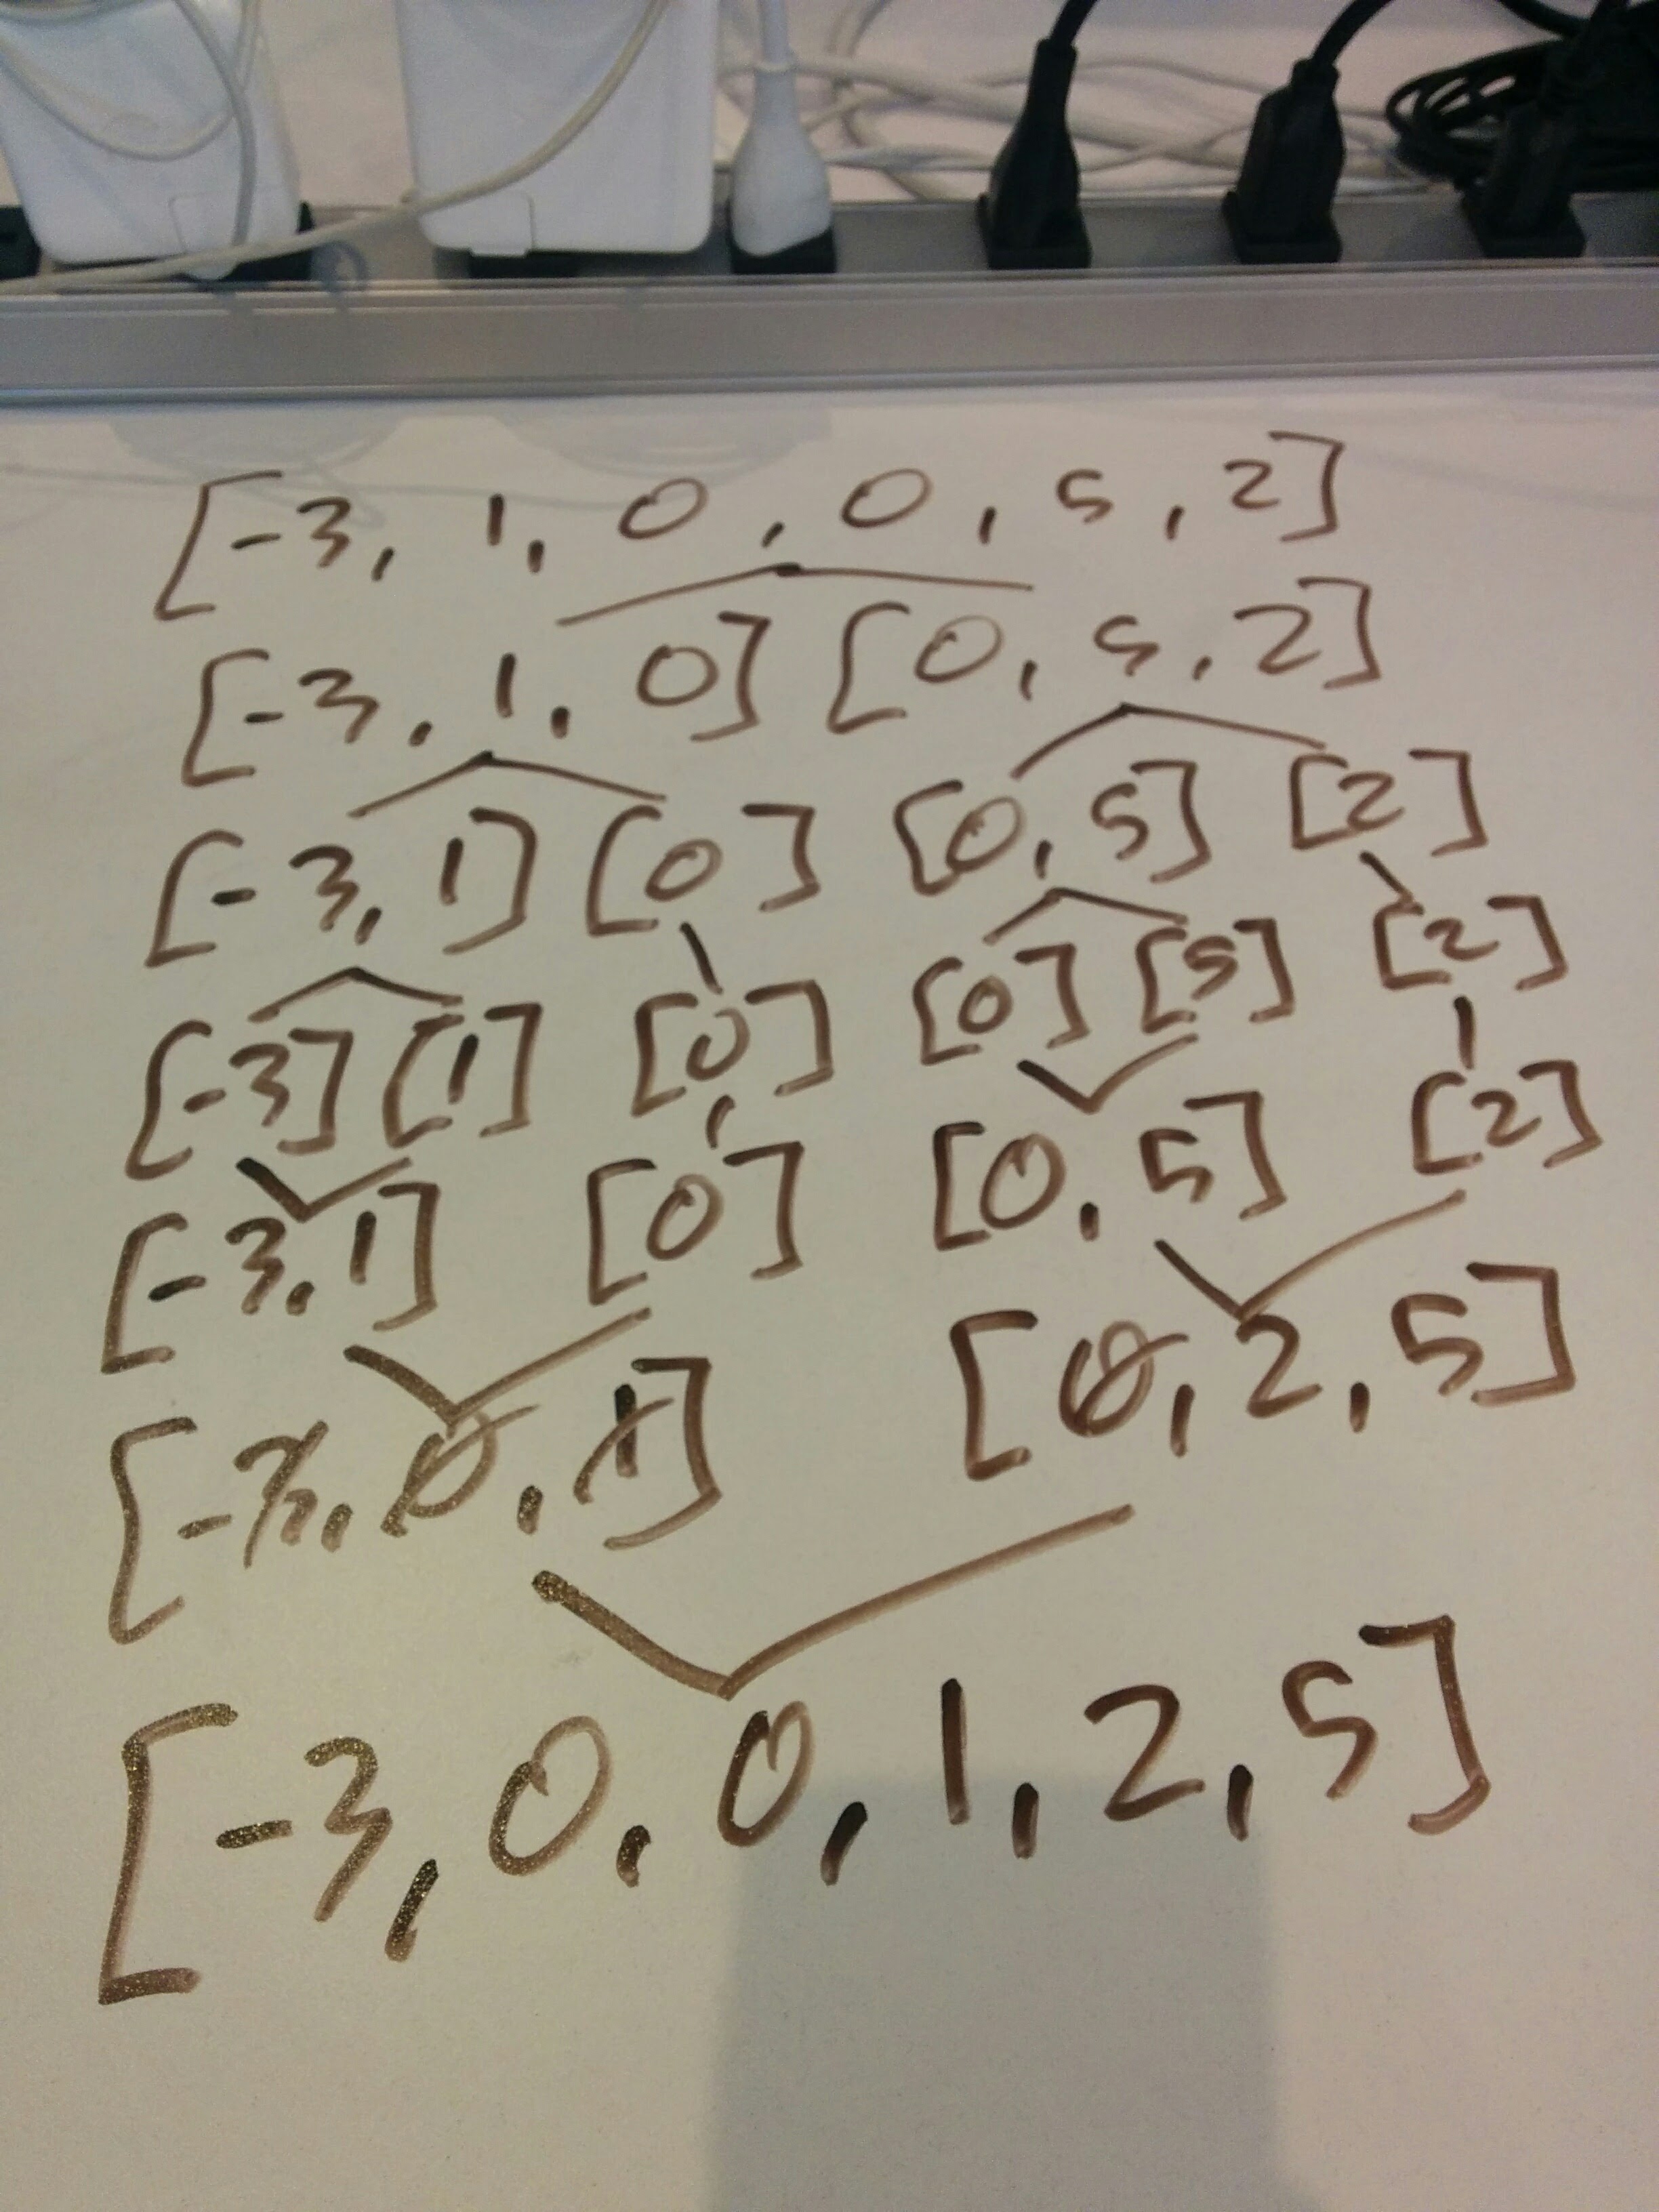 [-3, 1, 0, 0, 5, 2]
[-3, 1, 0] [0, 5, 2]
[-3, 1] [0] [0, 5] [2]
[-3] [1] [0] [0] [5] [2]
[-3, 1] [0] [0, 5] [2]
[-3, 0, 1] [0, 2, 5]
[-3, 0, 0, 1, 2, 5]